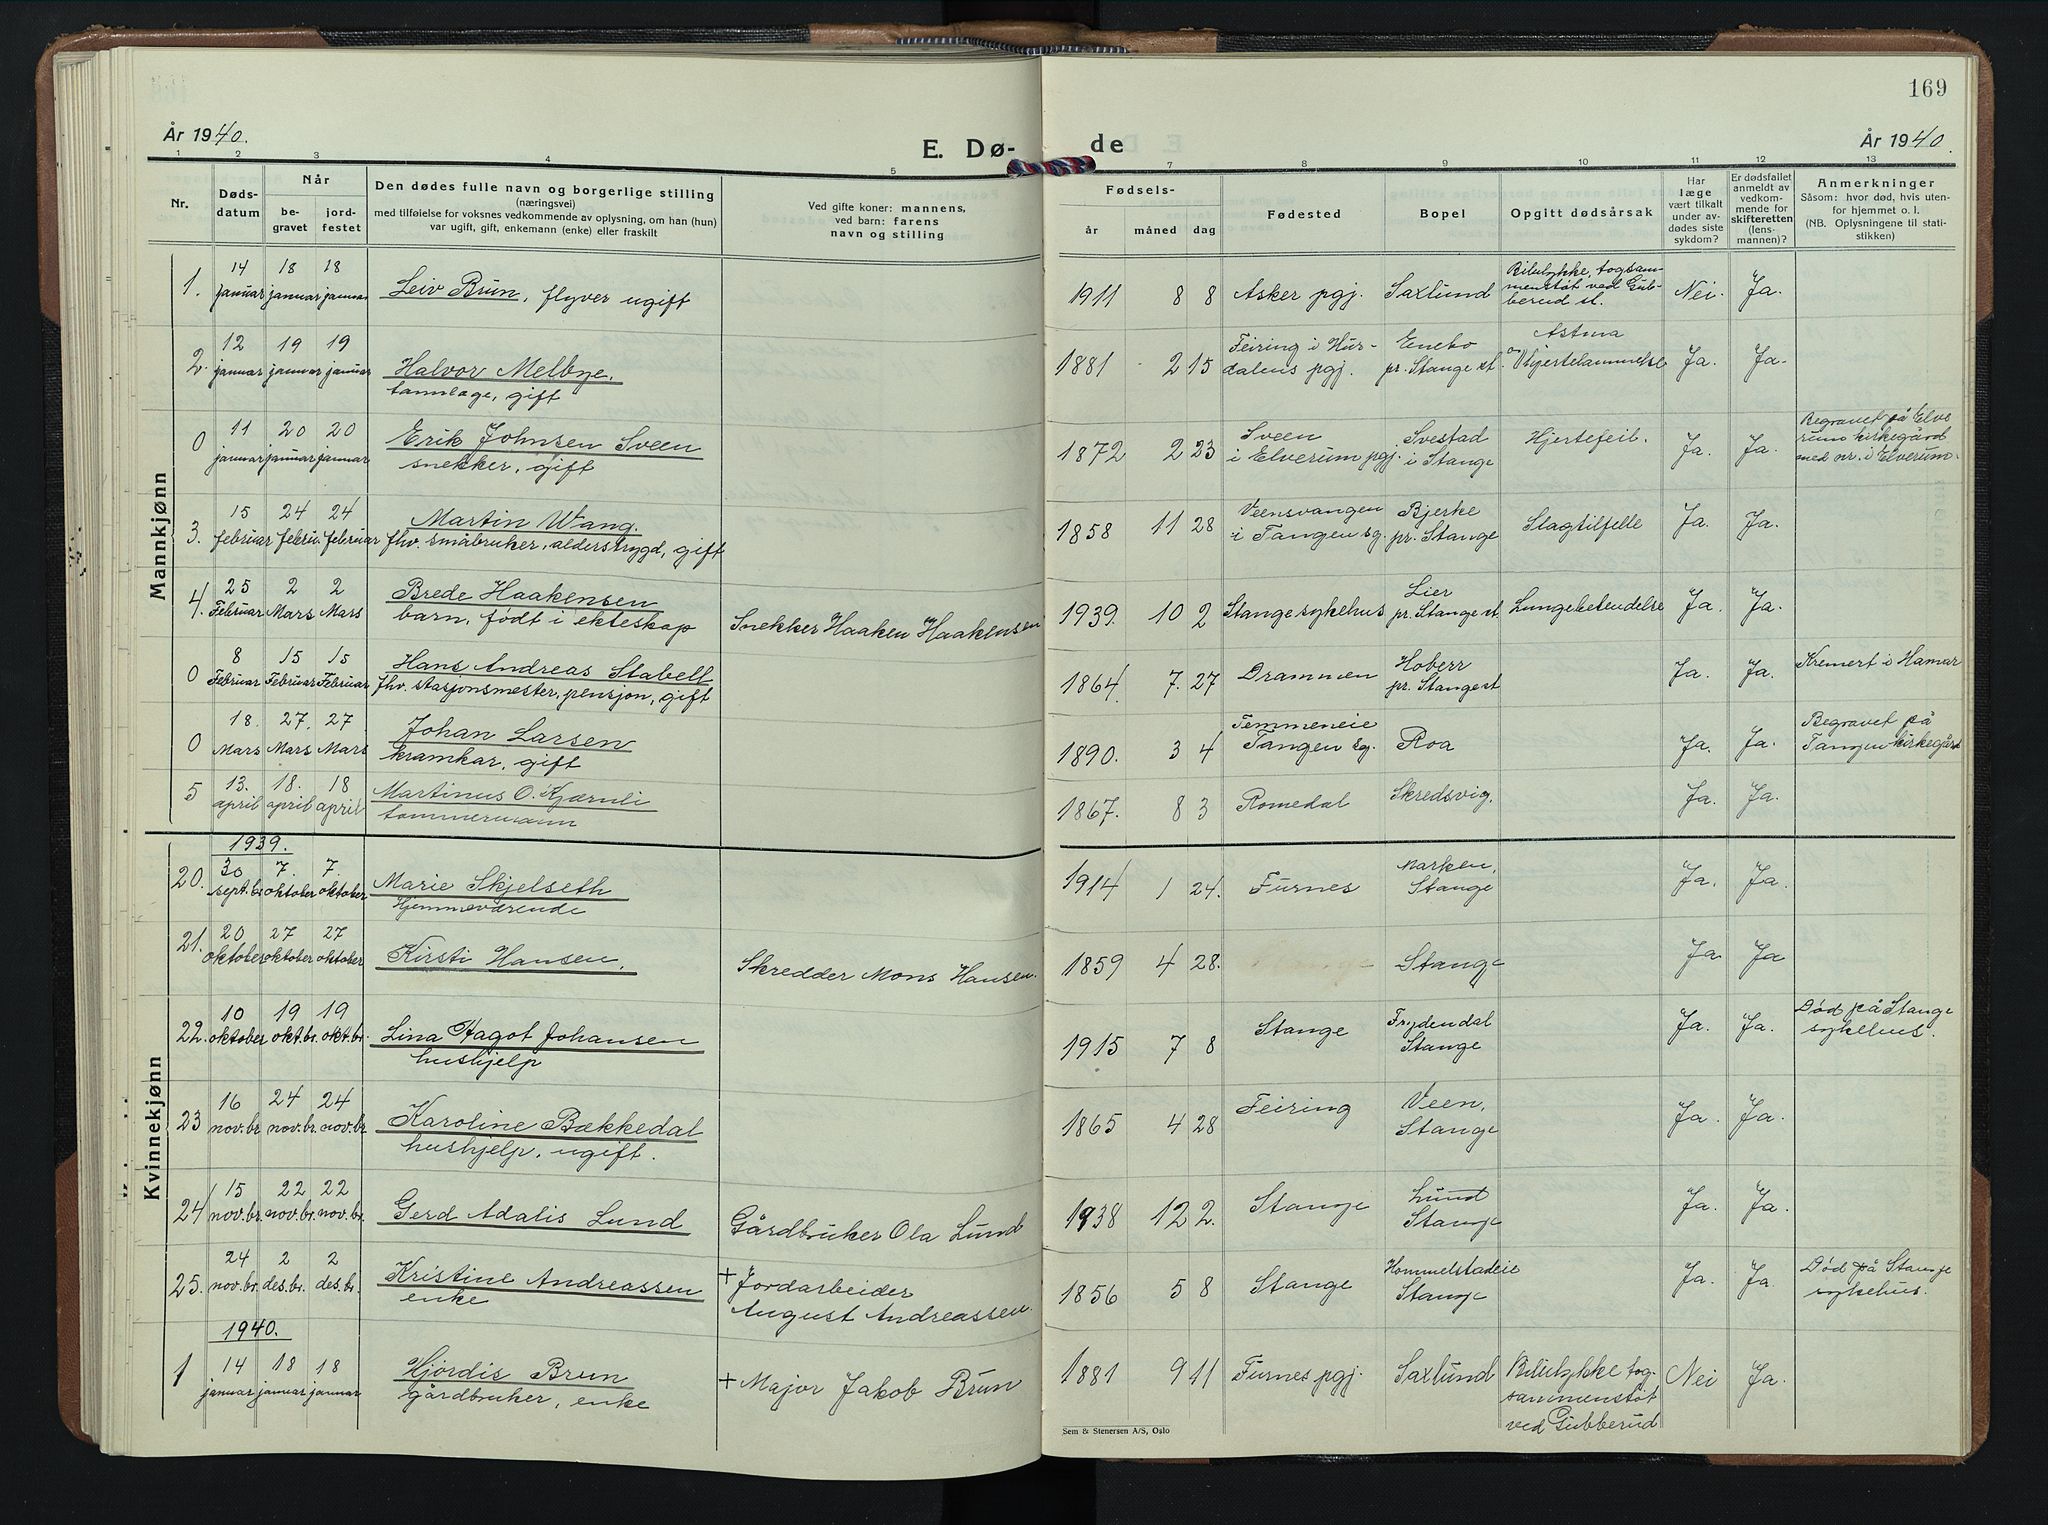 169
År 1940.
E. Dø-
de
År 1940.
1 2 3 4 5
7 8 9 10 11 12 13
Nr.
Døds-
datum
Når
be-
gravet
jord-
festet
Den dødes fulle navn og borgerlige stilling
(næringsvei)
med tilføielse for voksnes vedkommende av oplysning, om han (hun)
var ugift, gift, enkemann (enke) eller fraskilt
Ved gifte koner: mannens,
ved barn: farens
navn og stilling
Fødsels-
år måned dag
Fødested
Bopel
Opgitt dødsårsak
Har
læge
vært tilkalt
under av-
dødes siste
sykdom?
Er dødsfallet
anmeldt av
vedkom-
mende for
skifteretten
(lens-
mannen)?
Anmerkninger
Såsom: hvor død, hvis uten-
for hjemmet o. l.
(NB. Oplysningene til stati-
stikken)
Mannkjønn
1. 14 januar 18 januar 18 januar
Leiv Brun, flyver ugift
1911 8 8 Asker pgj. Saxlund
Bilulykke, togsam-
menstøt ved Gub-
berud st.
Nei. Ja.
2. 12 januar 19 januar 19 januar
Halvor Melbye.
tannlæge, gift
1881 2 15
Feiring i Hur-
dalens pgj.
Enebo
pr. Stange st.
Astma
og Hjertelammelse
Ja. Ja.
0 11 januar 20 januar 20 januar
Erik Johnsen Sveen
snekker, gift
1872 2 23
Sveen
i Elverum pgj.
Svestad
i Stange
Hjertefeil.
Ja. Ja.
Begravet på Elve
rum kirkegård
med nr. i Elverum.
3. 15 februar 24 febru. 24 februar
Martin Wang.
fhv. småbruker, alderstrygd, gift
1858 11 28
Veensvangen
i Tangen sg.
Bjerke
pr. Stange
Slagtilfelle
Ja. Ja.
4. 25 Februar 2 Mars 2 Mars
Brede Haakensen
barn, født i ekteskap
Snekker Haaken Haakensen
1939. 10 2 Stange sykehus
Lier
pr. Stange st.
Lungebetendelse
Ja Ja.
0 8 Februar 15 Februar 15 Februar
Hans Andreas Stabell
fhv. stasjonsmester, pensjon, gift
1864. 7. 27 Drammen
Hoberr
pr. Stange st
Ja. Ja.
Kremert i Hamar
0 18. Mars 27. Mars 27 Mars
Johan Larsen
kramkar, gift
1890. 3 4
Temmeneie
Tangen sg.
Roa
Ja. Ja.
Begravet på
Tangen kirkegård
5 13. april 18. april 18 april
Martinus O. Kjærnli
tømmermann
1867. 8 3 Romedal Skredsvig.
Ja. Ja.
Kvinnekjønn
1939.
20. 30 sept.br 7. oktober 7. oktober
Marie Skjelseth
Hjemmeværende
1914 1 24. Furnes
Marken,
Stange
Ja. Ja.
21. 20 oktober 27 oktober 27 oktober
Kirsti Hansen.
Skredder Mons Hansen.
1859 4 28. Stange
Ja Ja
22. 10 oktober 19 okt.br. 19 okt.br.
Lina Hagot Johansen
hushjelp
1915 7 8 Stange
Frydendal
Stange
Ja. Ja.
Død på Stange
sykehus.
23 16 nov.br 24 nov.br. 24 nov.br
Karoline Bækkedal
hushjelp, ugift.
1865 4 28 Feiring
Veen,
Stange
Ja. Ja.
24 15 nov.br. 22 nov.br. 22 nov.br.
Gerd Adalis Lund
Gårdbruker Ola Lund
1938 12 2. Stange
Lund
Stange
Ja. Ja.
25. 24 nov.br. 2 des.br. 2 des.br.
Kristine Andreassen
enke
+ Jordarbeider
August Andreassen.
1856 5 8 Stange
Hommelstadeie
Stange
Ja. Ja.
Død på Stange
sykehus.
1940.
1 14 januar 18 januar 18 januar
Hjørdis Brun
gårdbruker, enke
+ Major Jakob Brun
1881 9 11 Furnes pgj. Saxlund
Bilulykke tog-
sammenstøt
ved Gubberud
Nei Ja.
Sem & Stenersen A/S, Oslo